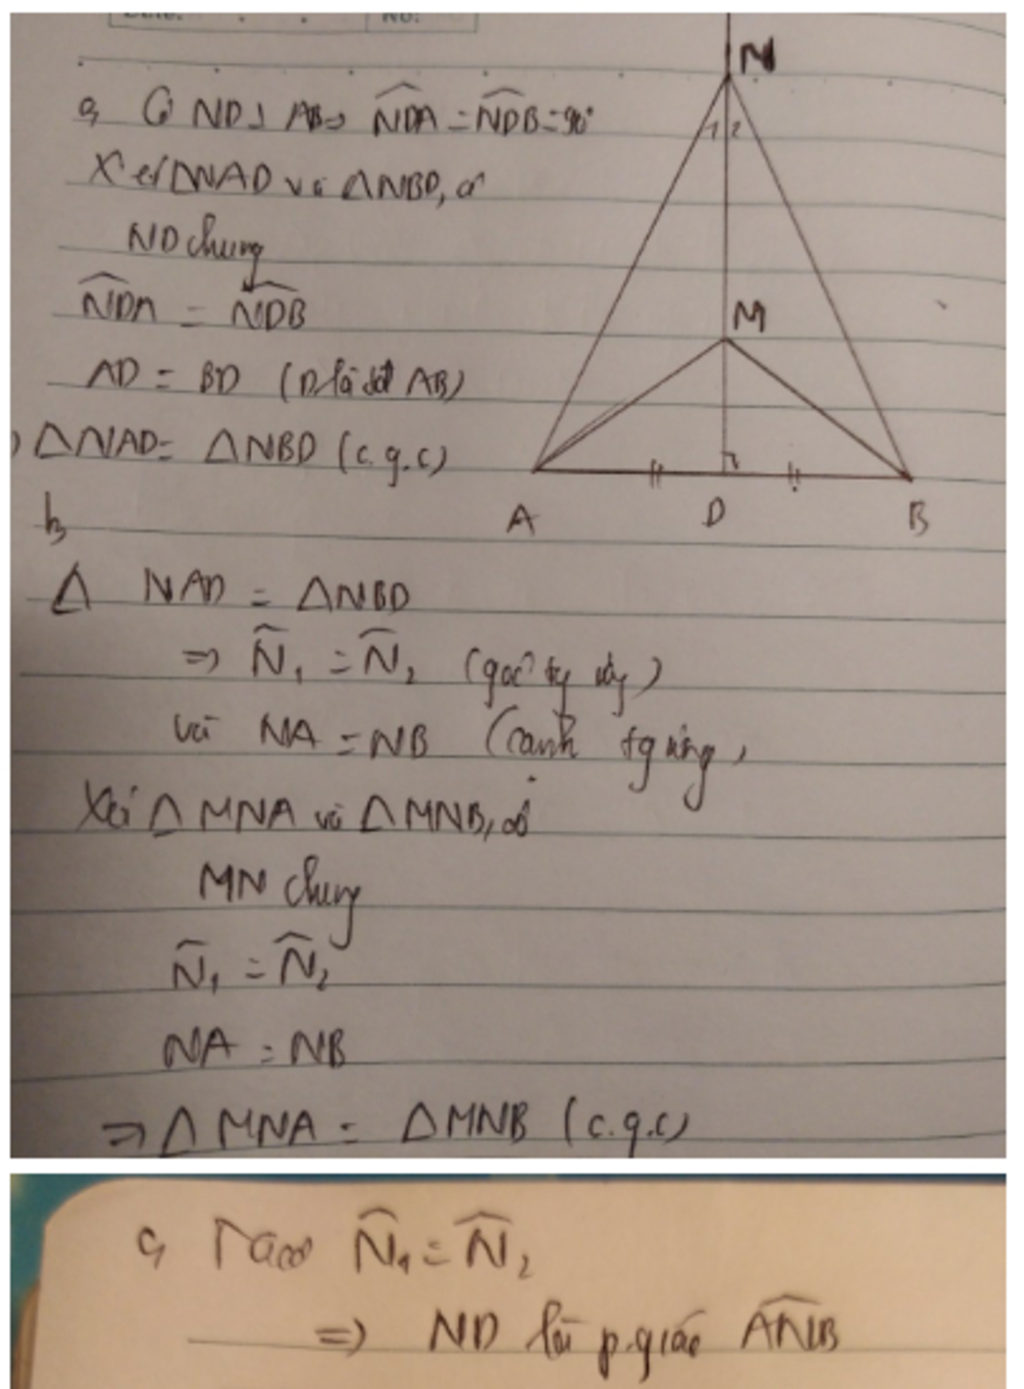 Date: No:
a, Có ND⊥AB⇒ NDA = NDB = 90°
Xét ΔNAD và ΔNBD, có
ND chung
NDA = NDB
AD = BD (D là tđ AB)
⇒ ΔNAD = ΔNBD (c.g.c)
b,
Δ NAD = ΔNBD
⇒ N̂₁ = N̂₂ (góc tg ứng)
và NA = NB (cạnh tg ứng)
Xét ΔMNA và ΔMNB, có
MN chung
N̂₁ = N̂₂
NA = NB
⇒ ΔMNA = ΔMNB (c.g.c)
N
1 2
M
A D B
c, Ta có N̂₁ = N̂₂
⇒ ND là p.giác ANB